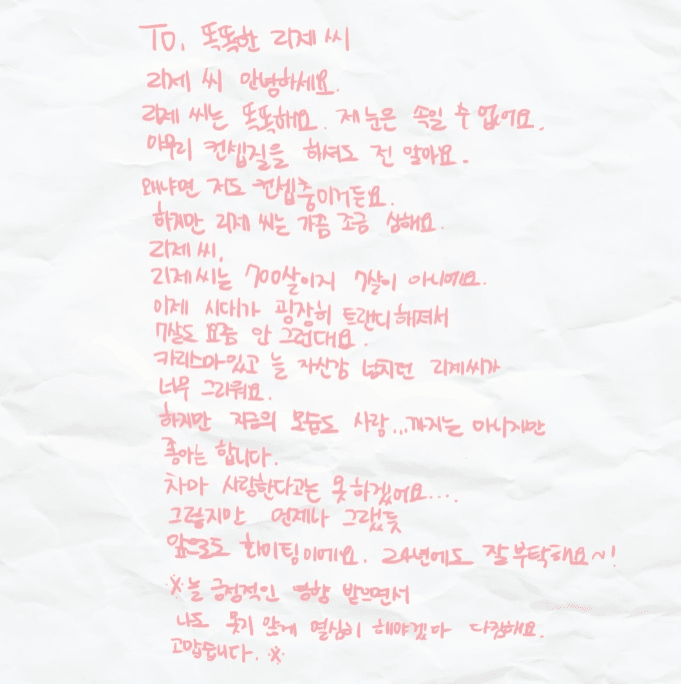 To. 똑똑한 리제 씨
리제 씨 안녕하세요.
리제 씨는 똑똑해요. 제 눈은 속일 수 없어요.
아무리 컨셉질을 하셔도 전 알아요.
왜냐면 저도 컨셉충이거든요.
하지만 리제 씨는 가끔 조금 심해요.
리제 씨,
리제씨는 700살이지 7살이 아니에요.
이제 시대가 굉장히 트랜디해져서
7살도 요즘 안 그런대요.
카리스마있고 늘 자신감 넘치던 리제씨가
너무 그리워요.
하지만 지금의 모습도 사랑...까지는 아니지만
좋아는 합니다.
차마 사랑한다고는 못하겠어요....
그렇지만 언제나 그랬듯
앞으로도 화이팅이에요. 24년에도 잘부탁해요~!
※늘 긍정적인 영향 받으면서
나도 못지 않게 열심히 해야겠다 다짐해요.
고맙습니다.※